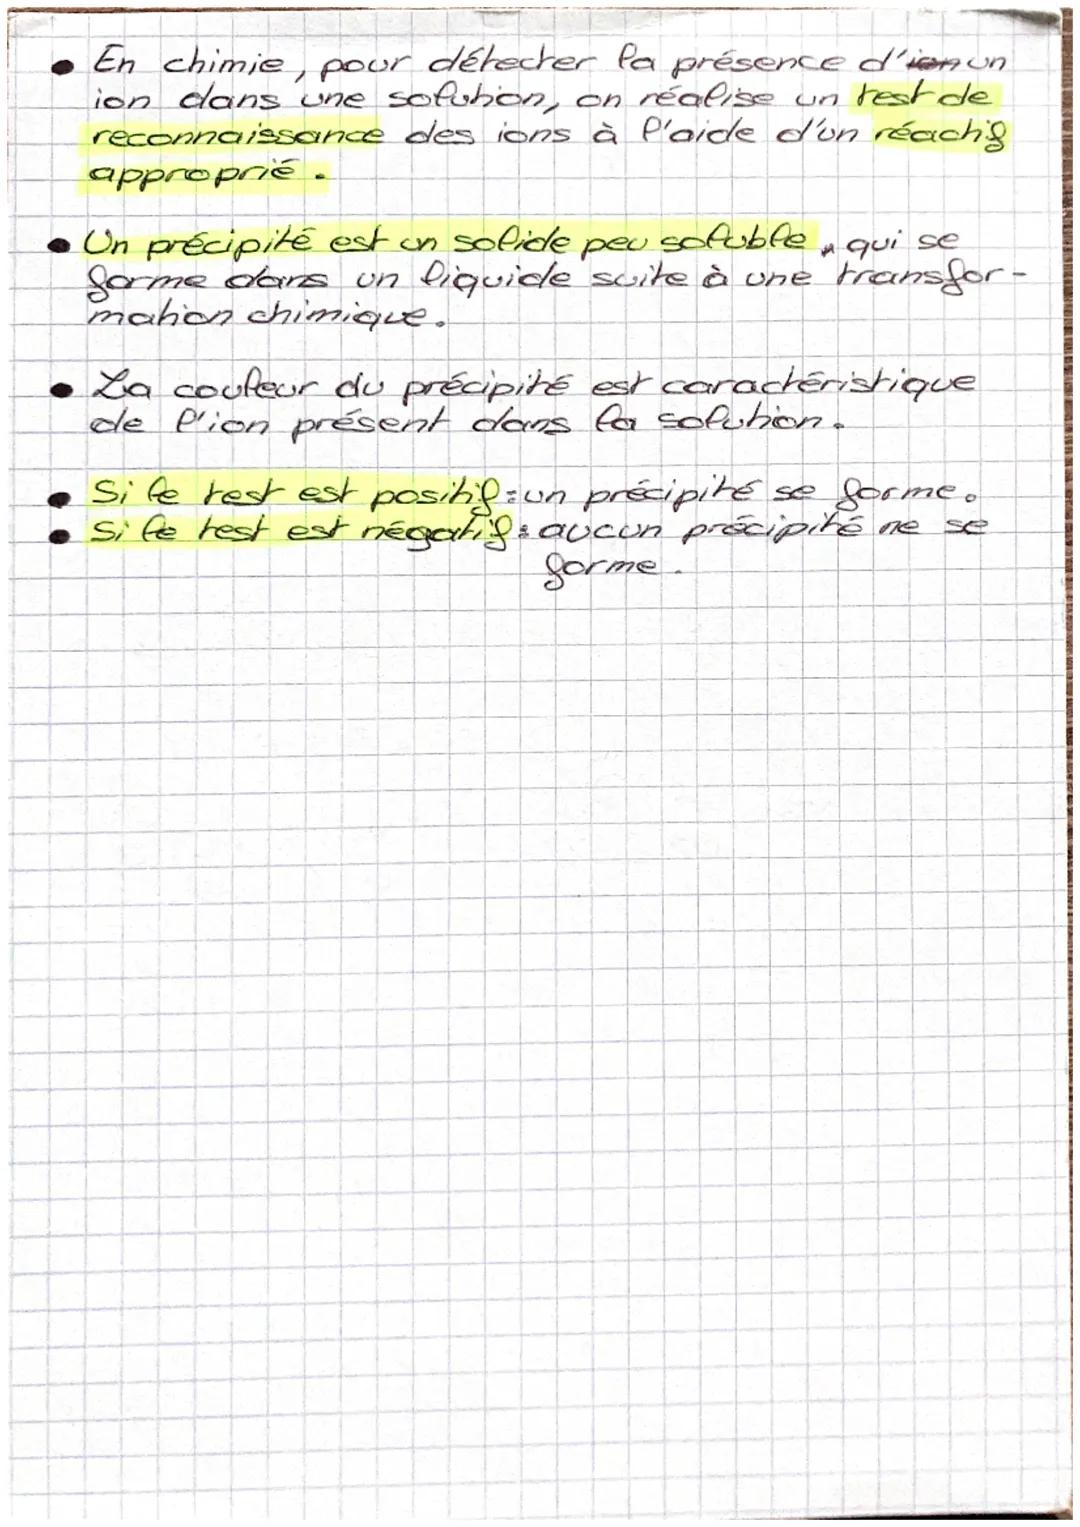 • En chimie, pour détecter la présence d'ion un
ion dans une solution, on réalise un test de
reconnaissance des ions à l'aide d'un réactif
approprié.
• Un précipité est un solide peu soluble, qui se
forme dans un liquide suite à une transfor-
mation chimique.
• La couleur du précipité est caractéristique
de l'ion présent dans la solution.
• Si le test est positif : un précipité se forme.
• Si le test est négatif : aucun précipité ne se
forme.